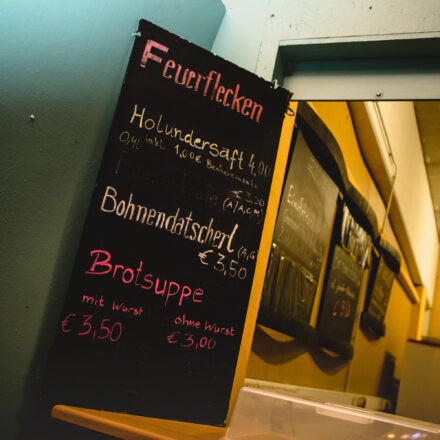 Feuerflecken
Holundersaft 4,00
0,4l inkl. 1,00€ Becherpfand
€ 3,50
(A,A,C,M)
Bohnendatscherl (A,G)
€ 3,50
Brotsuppe
mit Wurst ohne Wurst
€ 3,50 € 3,00